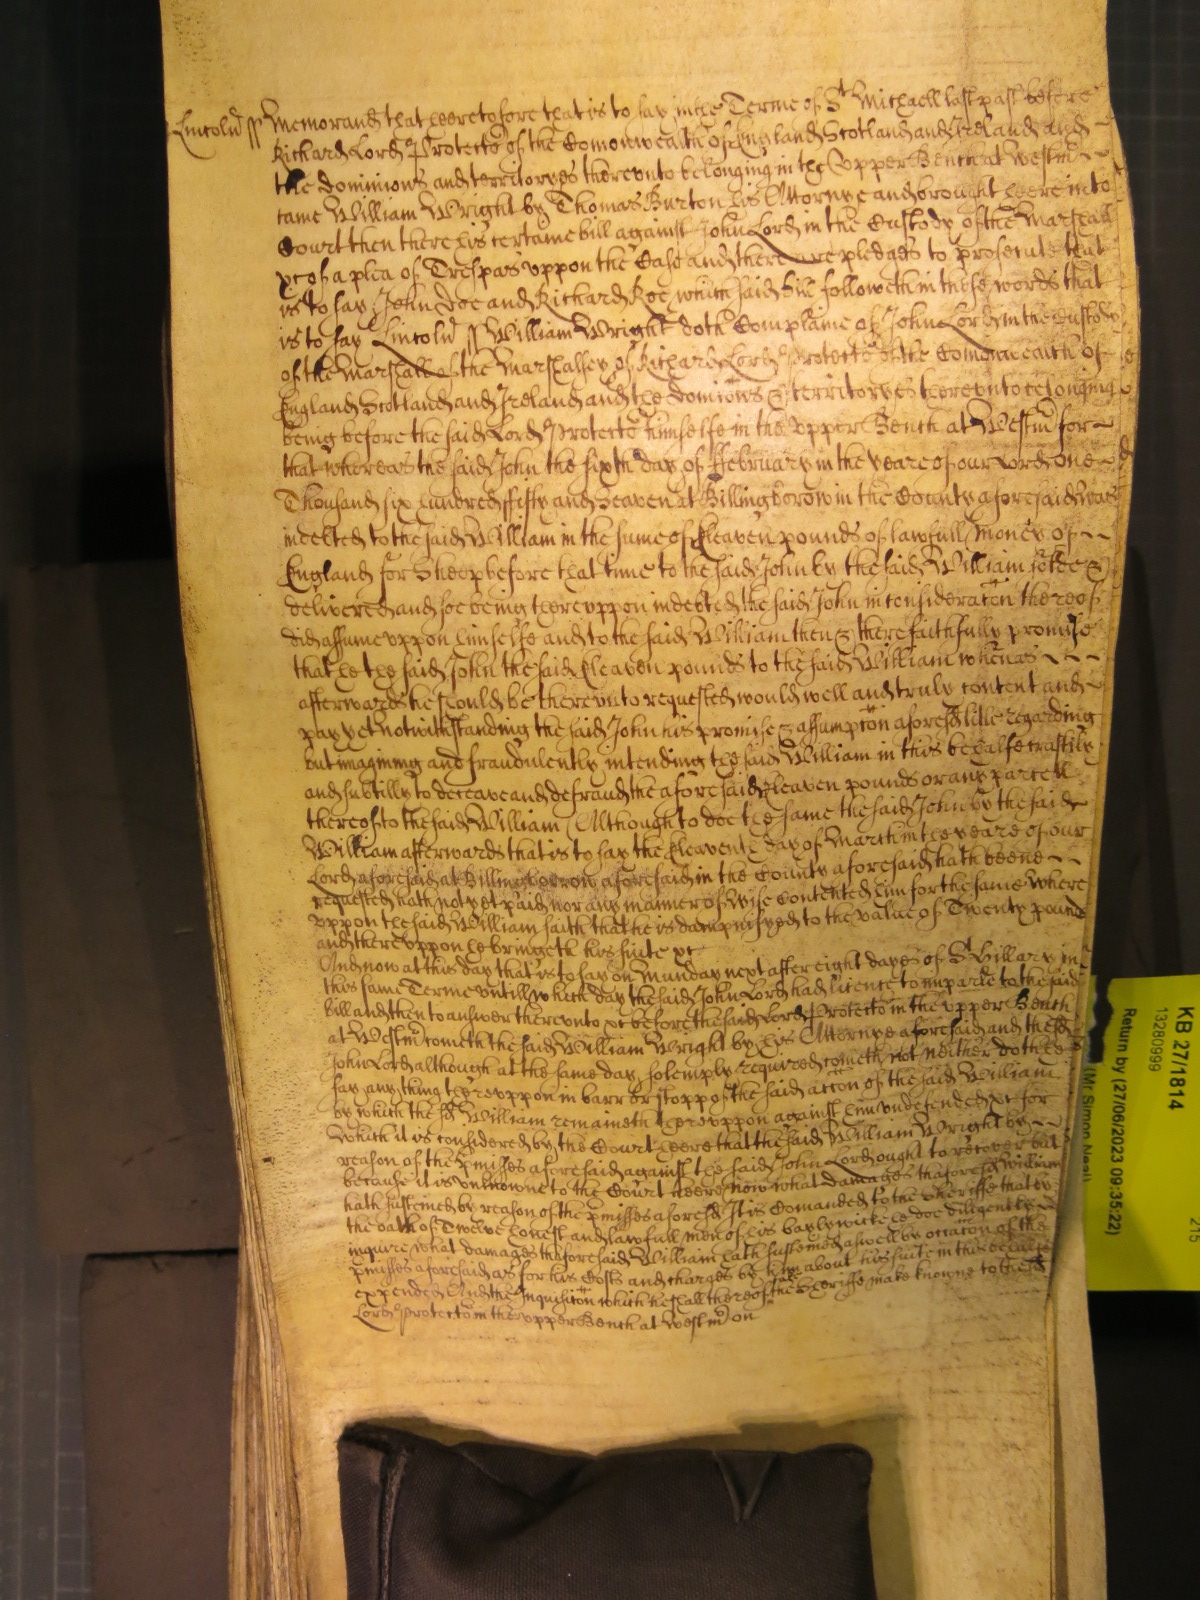 Lincoln ss Memorand that heretofore that is to say in the Terme of St Michaell last past before
Richard Lord Protector of the Comonwealth of England Scotland and Ireland and
the dominions and territoryes thereunto belonging in the Upper Bench at Westmr
came William Wright by Thomas Burton his Attornye and brought here into
Court then there his certaine bill against John Lord in the Custody of the Marshall
&c of a plea of Trespas uppon the Case and there are pledges to prosecute that
is to say John Doe and Richard Roe which said bill followeth in these words that
is to say Lincoln ss William Wright doth Complaine of John Lord in the custody
of the Marshall of the Marshalsey of Richard Lord Protector of the Comonwealth of
England Scotland and Ireland and the dominions & territoryes thereunto belonging
being before the said Lord Protector himselfe in the upper Bench at Westmr for
that whereas the said John the sixth day of ffebruary in the yeare of our Lord one
Thousand six hundred fifty and seaven at Billingborow in the County aforesaid was
indebted to the said William in the sume of Eleaven pounds of lawfull money of
England for Sheep before that time to the said John by the said William sold &
delivered and soe being thereuppon indebted the said John in consideracon thereof
did assume uppon himselfe and to the said William then & there faithfully promise
that he the said John the said Eleaven pounds to the said William when as
afterwards he should be thereunto requested would well and truly content and
pay yet notwithstanding the said John his promise & assumpcon aforesd litle regarding
but imagining and fraudulently intending the said William in this behalfe craftily
and subtilly to deceave and defraud the aforesaid Eleaven pounds or any parcell
thereof to the said William Although to doe the same the said John by the said
William afterwards that is to say the Eleaventh day of March in the yeare of our
Lord aforesaid at Billingborrow aforesaid in the County aforesaid hath beene
requested hath not yet paid nor any manner of wise Contented him for the same Where
uppon the said William saith that he is dampnifyed to the value of Twenty pounds
and thereuppon he bringeth his suite &c
And now at this day that is to say on Munday next after eight dayes of St Hillary in
this same Terme untill which day the said John Lord had licence to imparle to the said
bill and then to answer thereunto &c before the said Lord Protector in the upper Bench
at Westmr cometh the said William Wright by his Attornye aforesaid and the sd
John Lord although at the same day solemply required cometh not neither doth he
say any thing thereuppon in barr or stopp of the said accon of the said William
by which the sd William remaineth thereuppon against him undefended &c for
which it is considered by the Court here that the said William Wright by
reason of the pmisses aforesaid against the said John Lord ought to recover but
because it is unknowne to the Court here now what damages the aforesd William
hath susteined by reason of the pmisses aforesd It is Comanded to the Sheriffe that by
the oath of Twelve honest and lawfull men of his baylywicke he doe diligently
inquire what damages the aforesaid William hath susteined aswell by occacon of the
pmisses aforesaid as for his Costs and charges by him about his suite in this behalfe
expended And the Inquisicon which he shall thereof take the Sheriffe make knowne to the sd
Lord Protector in the upper Bench at Westmr on
KB 27/1814
13280999
Return by (27/06/2023 09:35:22)
(Mr Simon Neal)